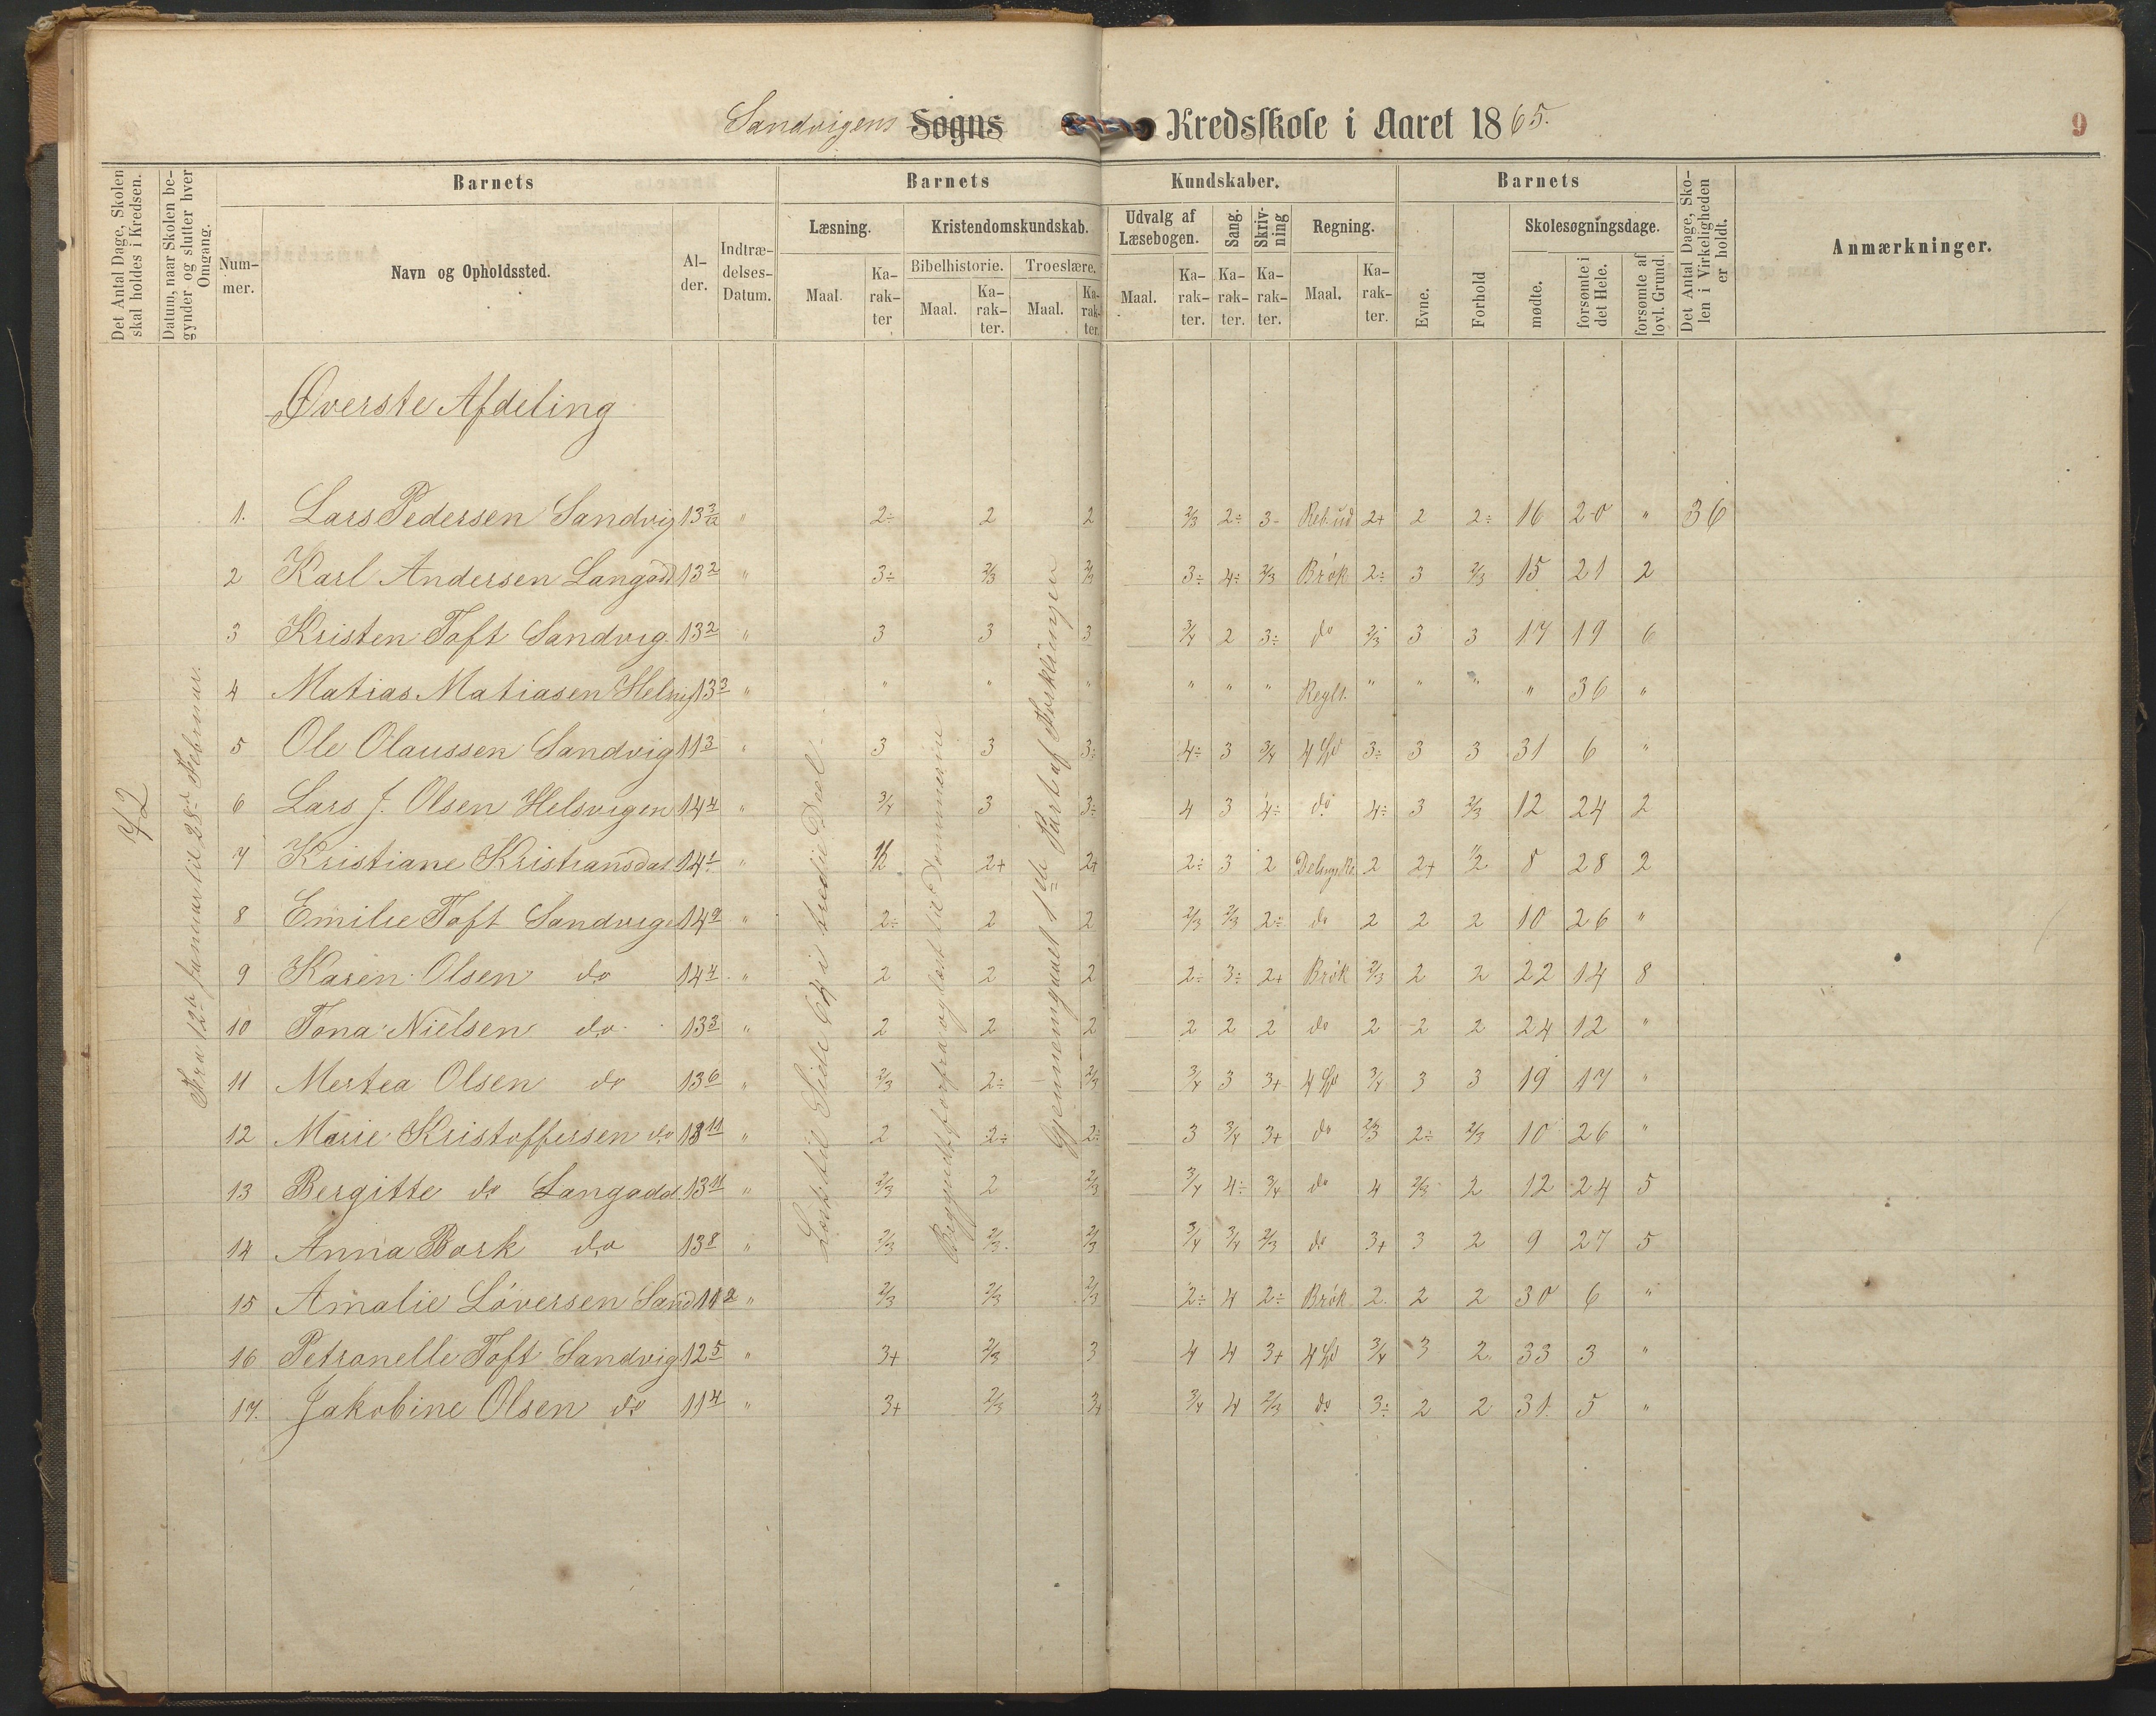 Sandvigens Sogns Kredsskole i Aaret 1865.
9
Det Antal Dage, Skolen skal holdes i Kredsen.
Datum, naar Skolen begynder og slutter hver Omgang.
Barnets
Barnets
Kundskaber.
Barnets
Det Antal Dage, Skolen i Virkeligheden er holdt.
Anmærkninger.
Nummer.
Navn og Opholdssted.
Alder.
Indtrædelses-Datum.
Læsning.
Kristendomskundskab.
Udvalg af Læsebogen.
Sang.
Skrivning
Regning.
Evne.
Forhold
Skolesøgningsdage.
Bibelhistorie.
Troeslære.
Maal.
Karakter
Maal.
Karakter.
Maal.
Karakter.
Maal.
Karakter.
Karakter.
Karakter.
Maal.
Karakter.
mødte.
forsømte i det Hele.
forsømte af lovl. Grund.
Øverste Afdeling
72
Fra 12te Januar til 28de Februar.
Læst til Side 64 i tredie Deel
Begyndt forfra og læst til Dommerne
Gjennemgaaet 1ste Part af Forklaringen
1. Lars Pedersen Sandvig 13 3/12 " 2÷ 2 2 2/3 2÷ 3- Reb. ud 2+ 2 2÷ 16 20 " 36
2 Karl Andersen Langodd 13 2 " 3÷ 2/3 2/3 3÷ 4÷ 2/3 Brøk 2÷ 3 2/3 15 21 2
3 Kristen Toft Sandvig. 13 2 " 3 3 3 3/4 2 3÷ do 2/3 3 3 17 19 6
4 Matias Matiasen Helvig 13 3 " " " " " " " Regl. " " " " 36 "
5 Ole Olaussen Sandvig 11 3 " 3 3 3÷ 4÷ 3 3/4 3÷ 3 3 31 6 "
6 Lars J. Olsen Helsvigen 14 4 " 3/4 3 3÷ 4 3 4÷ do 4÷ 3 2/3 12 24 2
7 Kristiane Kristiansdat 14 1 " 1/2 2+ 2+ 2÷ 3 2 2 2+ 1/2 8 28 2
8 Emilie Toft Sandvige 14 9 " 2÷ 2 2 2/3 2/3 2÷ do 2 2 2 10 26 "
9 Karen Olsen do 14 4 " 2 2 2 2÷ 3÷ 2+ Brøk 2/3 2 2 22 14 8
10 Tona Nielsen do 13 3 " 2 2 2 2 2 2 do 2 2 2 24 12 "
11 Mertea Olsen do 13 6 " 2/3 2÷ 2/3 3/4 3 3+ 3/4 3 3 19 17 "
12 Marie Kristoffersen do 13 11 " 2 2÷ 2÷ 3 3/4 3+ do 2/3 2÷ 2/3 10 26 "
13 Bergitte do Langodd 13 11 " 2/3 2 2/3 3/4 4÷ 3/4 do 4 2/3 2 12 24 5
14 Anna Bork do 13 8 " 2/3 2/3 2/3 3/4 3/4 2/3 do 3+ 3 2 9 27 5
15 Amalie Løversen Sand 11 2 " 2/3 2/3 2/3 2÷ 4 2÷ Brøk 2 2 2 30 6 "
16 Petronelle Toft Sandvig 12 5 " 3+ 2/3 3 4 4 3+ 3/4 3 2 33 3 "
17. Jakobine Olsen do 11 4 " 3+ 2/3 3+ 3/4 4 2/3 do 3÷ 2 2 31 5 "